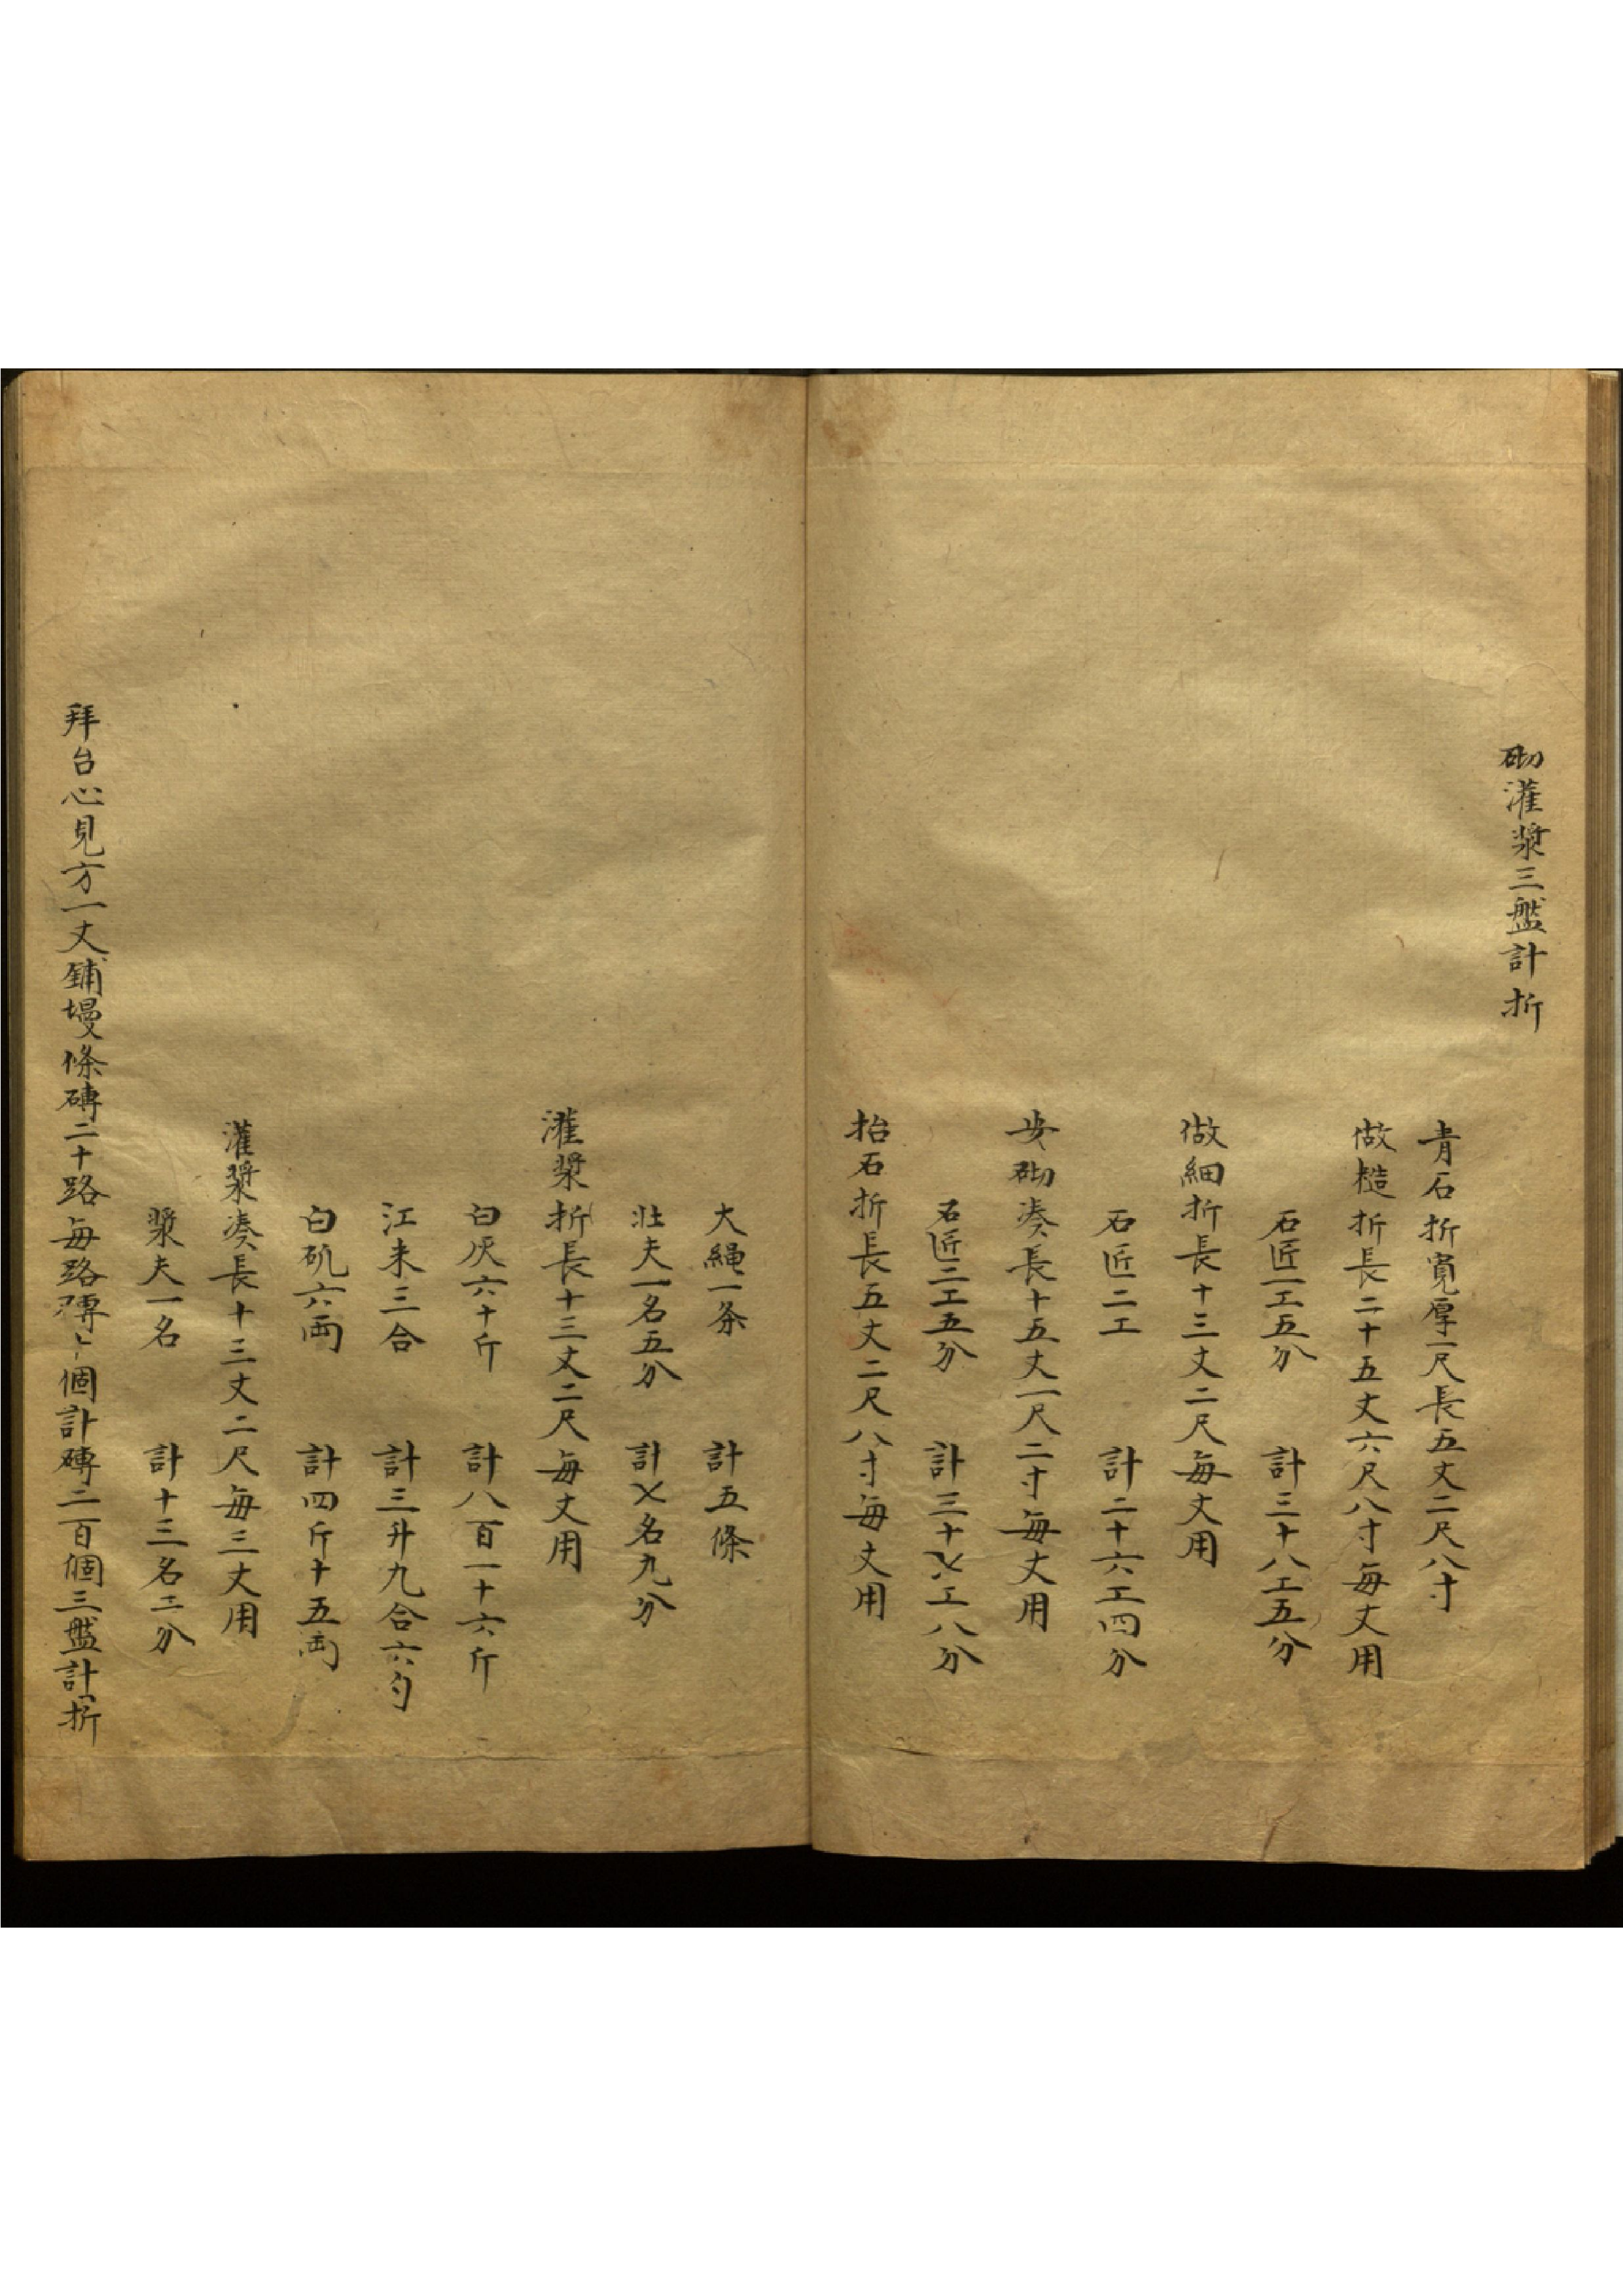 砌灌漿三盤計折
青石折寬厚一尺長五丈二尺八寸
做糙折長二十五丈六尺八寸每丈用
石匠一工五分 計三十八工五分
做細折長十三丈二尺每丈用
石匠二工 計二十六工四分
安砌湊長十五丈一尺二寸每丈用
石匠二工五分 計三十乂工八分
抬石折長五丈二尺八寸每丈用
大繩一条 計五條
壯夫一名五分 計乂名九分
灌漿折長十三丈二尺每丈用
白灰六十斤 計八百一十六斤
江米三合 計三升九合六勺
白矾六両 計四斤十五両
灌漿湊長十三丈二尺每三丈用
漿夫一名 計十三名二分
拜台心見方一丈鋪墁條磚二十路每路磚十個計磚二百個三盤計折